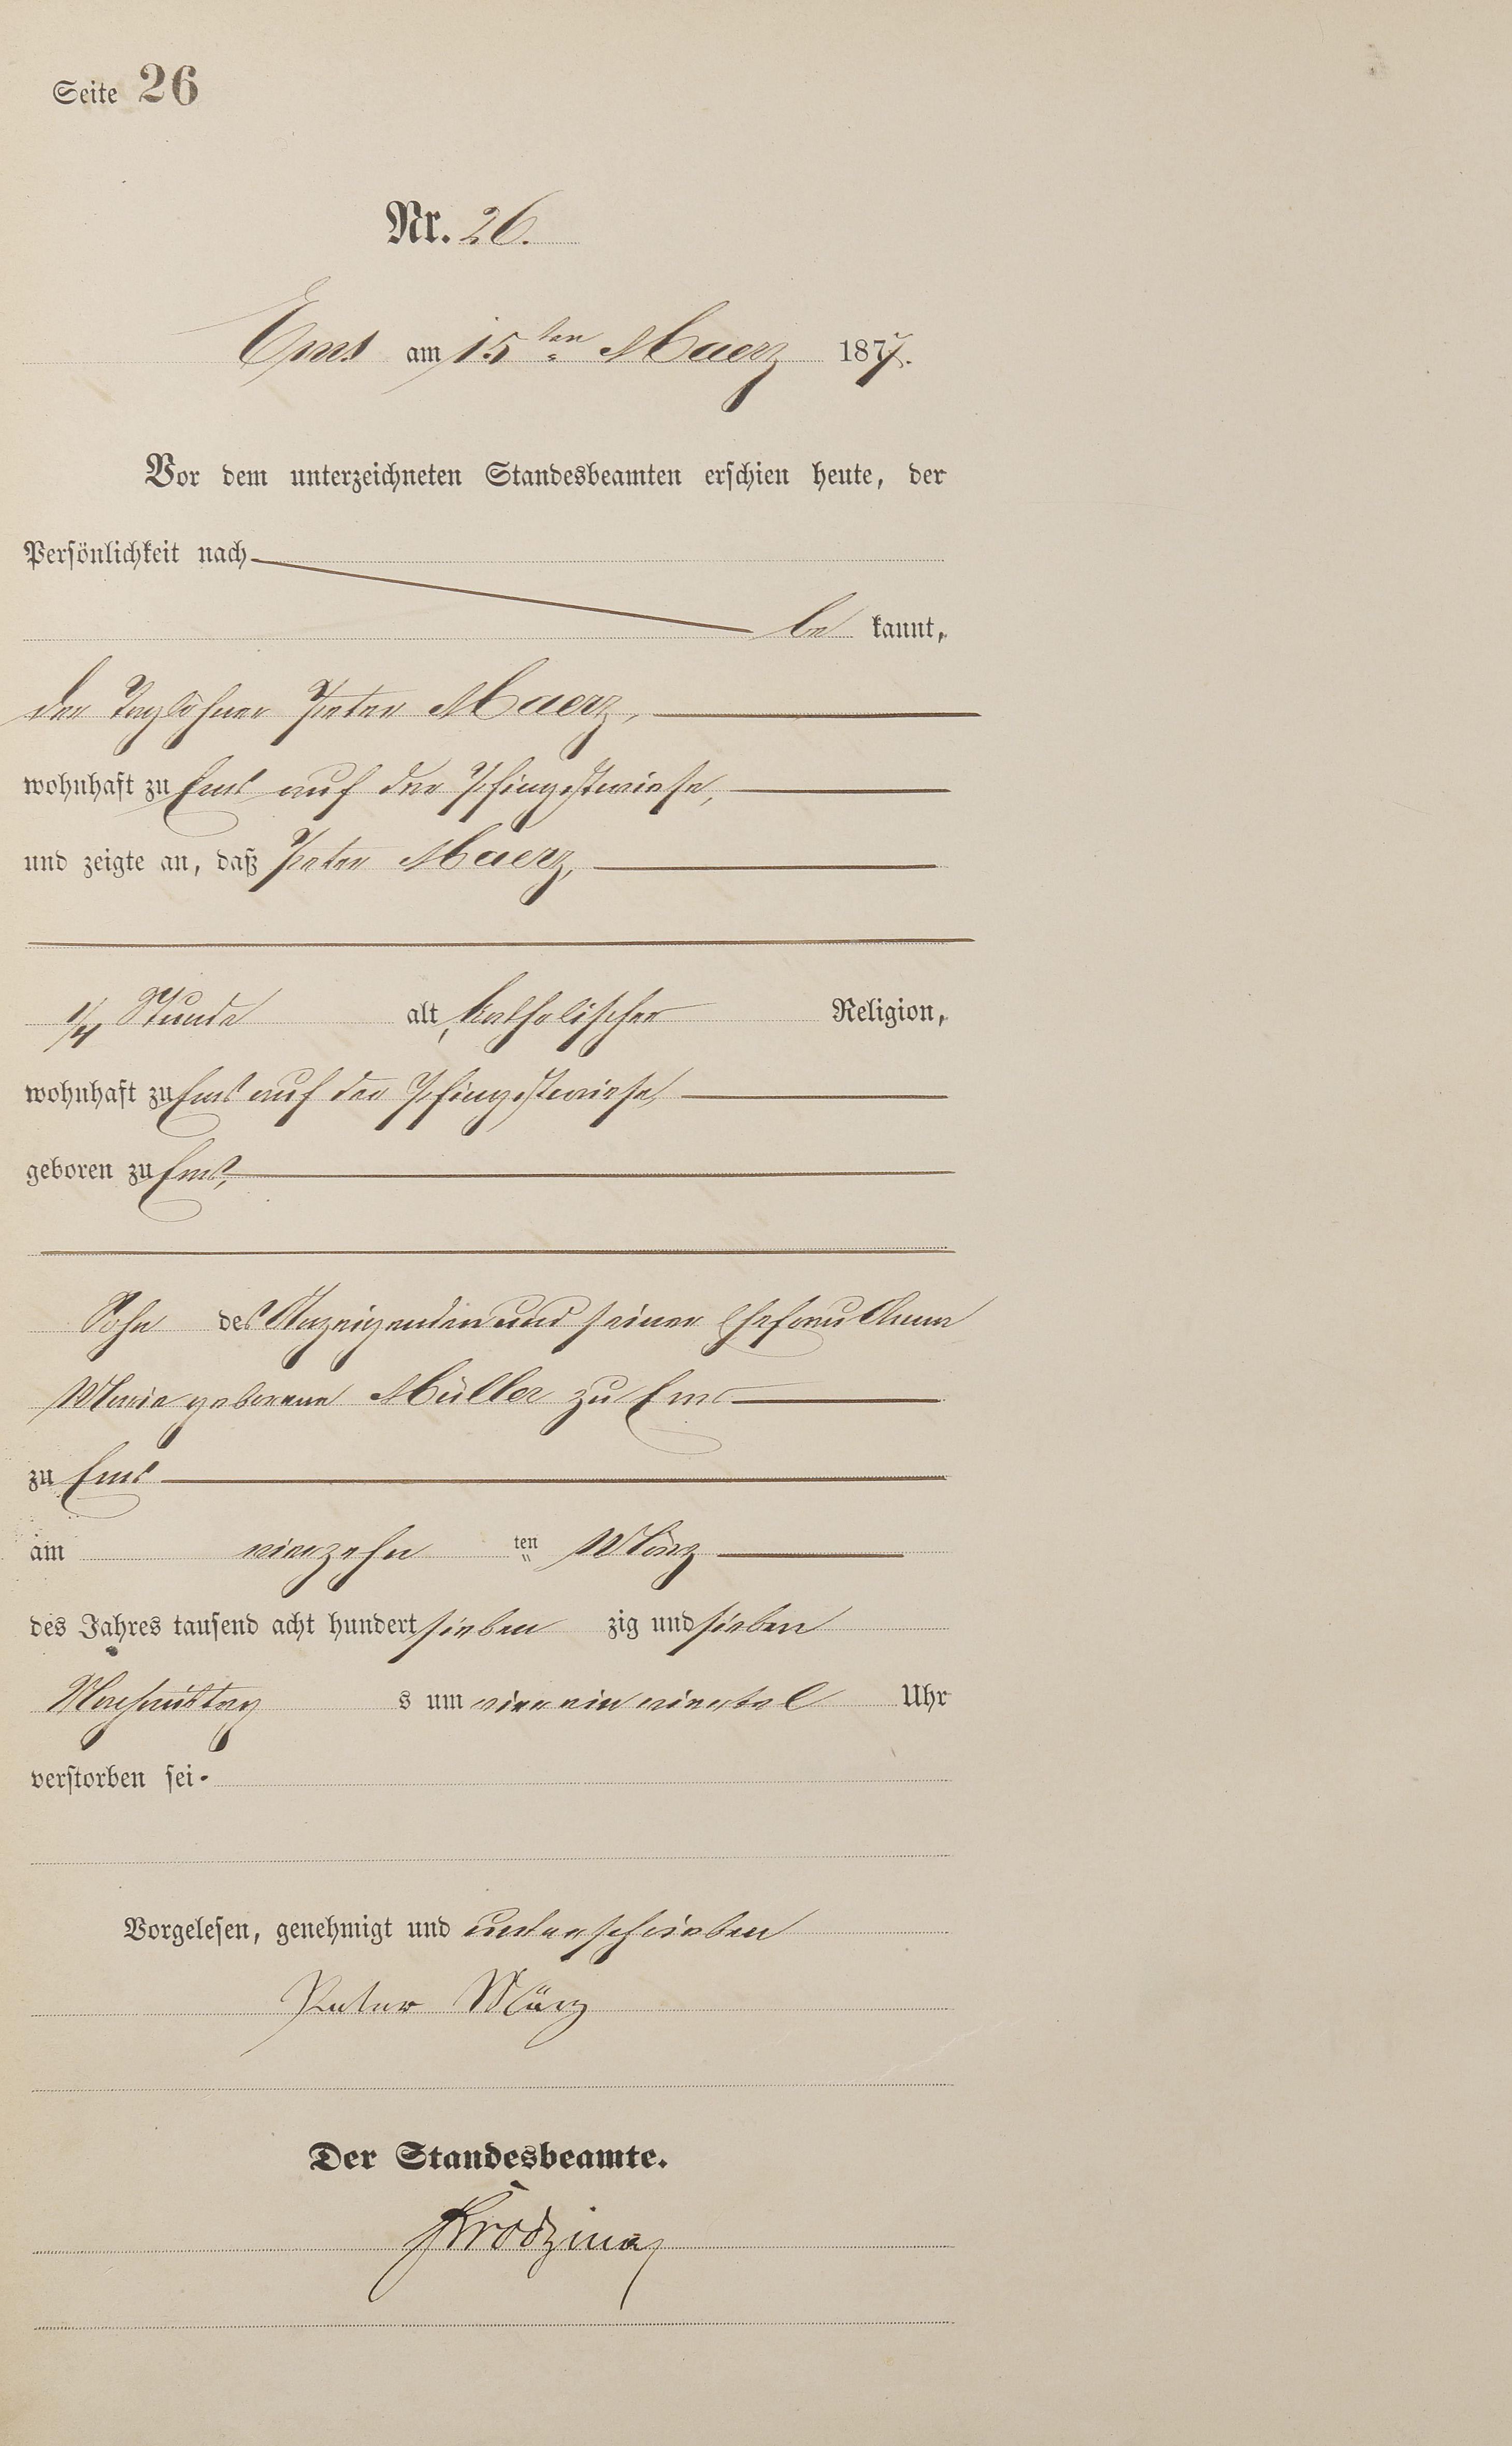 Seite 26
Nr. 26.
Ems am 15ten Maerz 1877.
Vor dem unterzeichneten Standesbeamten erschien heute, der
Persönlichkeit nach
be kannt,
der Taglöhner Peter Maerz,
wohnhaft zu Ems auf der Pfingstwiese,
und zeigte an, daß Peter Maerz,
1/4 Stunde alt, katholischer Religion,
wohnhaft zu Ems auf der Pfingstwiese,
geboren zu Ems,
Sohn des Anzeigenden und seiner Ehefrau Anna
Maria geborene Müller zu Ems
zu Ems
am vierzehn ten März
des Jahres tausend acht hundert sieben zig und sieben
Nachmittag s um vier ein viertel Uhr
verstorben sei.
Vorgelesen, genehmigt und unterschrieben
Peter März
Der Standesbeamte.